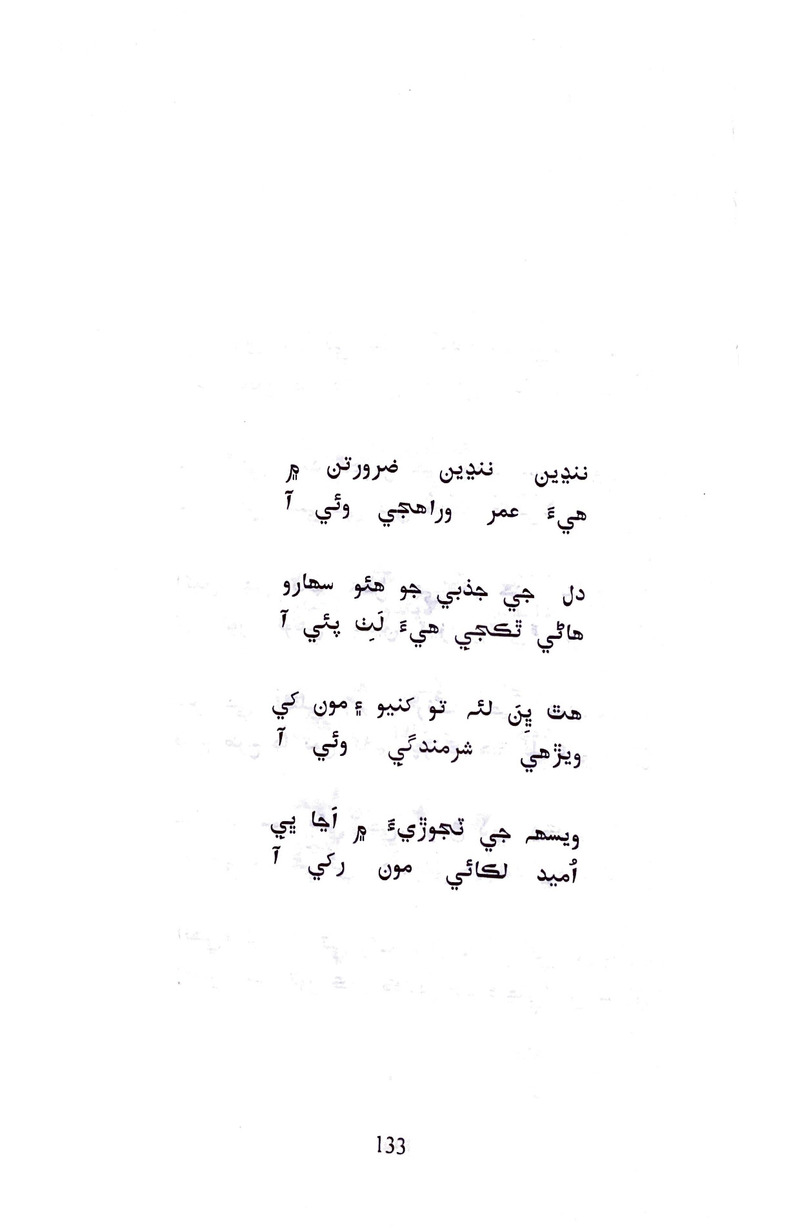 ننڍين ننڍين ضرورتن ۾
هيءَ عمر وراهجي وئي آ
دل جي جذبي جو هئو سهارو
هاڻي ٿڪجي هيءَ لَٽِ پئي آ
هٿ پِنَ لئہ تو کنيو ۽ مون کي
ويڙهي شرمندگي وئي آ
ويسھ جي تجوڙيءَ ۾ اَڃا ڀي
اُميد لڪائي مون رکي آ
133